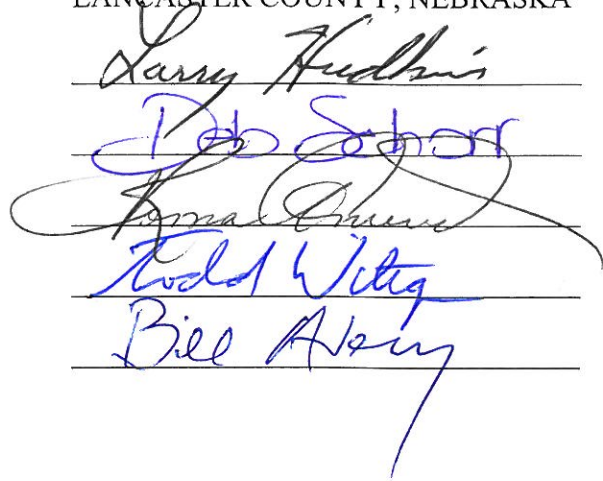 LANCASTER COUNTY, NEBRASKA
Larry Hudkins
Deb Schorr
Roma Amundson
Todd Wiltgen
Bill Avery